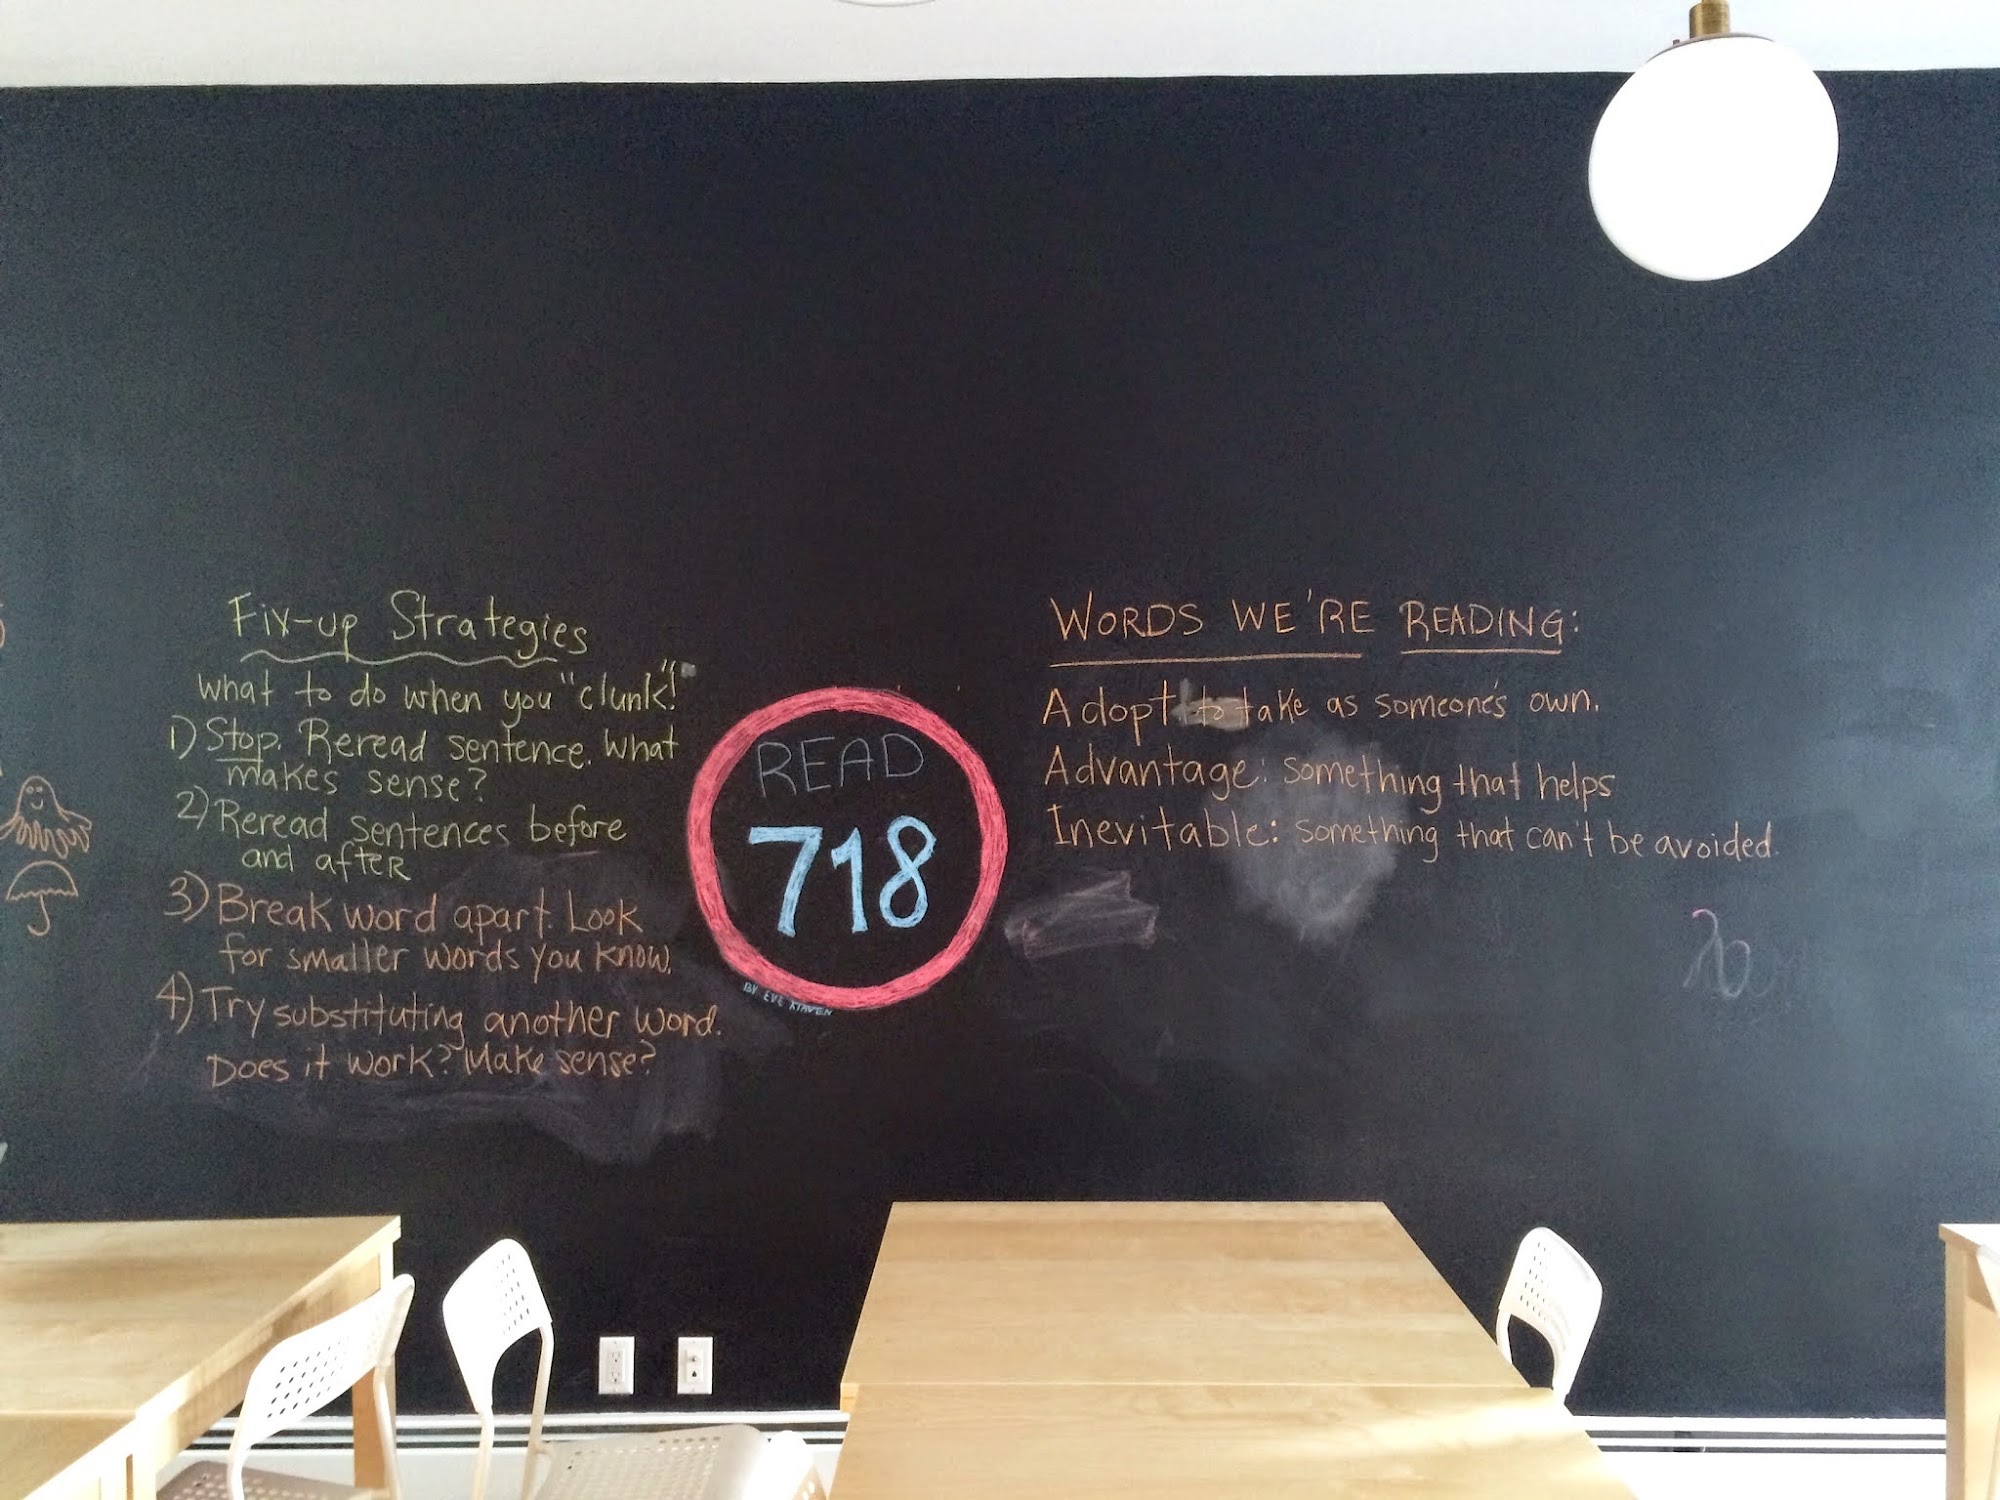 Fix-up Strategies
What to do when you "clunk!"
1) Stop. Reread sentence. What
makes sense?
2) Reread sentences before
and after
3) Break word apart. Look
for smaller words you know.
4) Try substituting another word.
Does it work? Make sense?
READ
718
BY EVE
WORDS WE'RE READING:
Adopt: to take as someone's own.
Advantage: something that helps
Inevitable: something that can't be avoided.